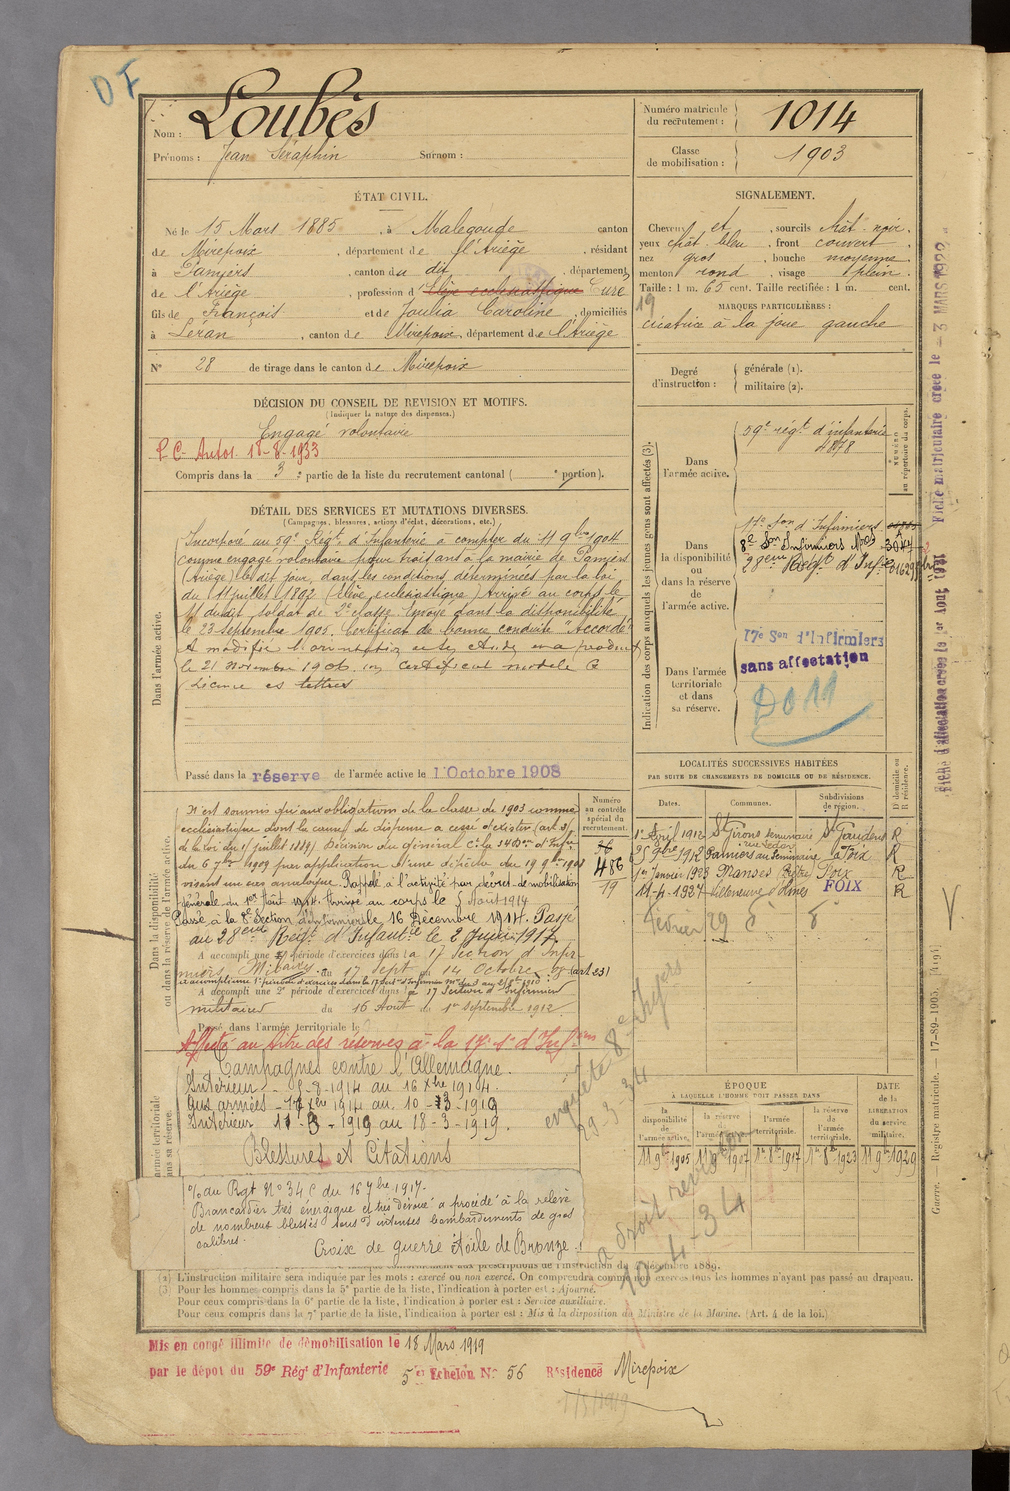 DF
Nom : Loubès
Prénoms : Jean Séraphin Surnom :
Numéro matricule du recrutement : 1014
Classe de mobilisation : 1903
ÉTAT CIVIL.
Né le 15 Mars 1885, à Malegoude canton
de Mirepoix, département de l'Ariège, résidant
à Pamiers, canton du dit, département
de l'Ariège, profession d'Élève ecclésiastique Curé
fils de François et de Joulia Caroline, domiciliés
à Léran, canton de Mirepoix, département de l'Ariège
N° 28 de tirage dans le canton de Mirepoix
SIGNALEMENT.
Cheveux et, sourcils chât. noir.
yeux chât. bleu, front couvert,
nez gros, bouche moyenne
menton rond, visage plein.
Taille : 1 m. 65 cent. Taille rectifiée : 1 m. cent.
19
MARQUES PARTICULIÈRES :
cicatrice à la joue gauche
Degré d'instruction : générale (1).
militaire (2).
DÉCISION DU CONSEIL DE REVISION ET MOTIFS.
(Indiquer la nature des dispenses.)
Engagé volontaire
P C. Autos. 18-8-1933
Compris dans la 3e partie de la liste du recrutement cantonal ( e portion).
DÉTAIL DES SERVICES ET MUTATIONS DIVERSES.
(Campagnes, blessures, actions d'éclat, décorations, etc.)
Dans l'armée active.
Incorporé au 59e Régt d'Infanterie à compter du 11 9bre 1904
comme engagé volontaire pour trois ans à la mairie de Pamiers
(Ariège) le dit jour, dans les conditions déterminées par la loi
du 11 juillet 1892 (Élève ecclésiastique) Arrivé au corps le
11 du dit, soldat de 2e classe. Envoyé dans la disponibilité
le 23 septembre 1905. Certificat de bonne conduite "Accordé"
le 21 Novembre 1906, un certificat modèle C
Licence es lettres
Passé dans la réserve de l'armée active le 1 Octobre 1908
Indication des corps auxquels les jeunes gens sont affectés (3).
NUMÉRO au répertoire du corps.
Dans l'armée active.
59e régt d'infanterie
4878
Dans la disponibilité ou dans la réserve de l'armée active.
17e Son d'Infirmiers
8e Son Infirmiers
28eme Régt d'Infie
Dans l'armée territoriale et dans sa réserve.
17e Son d'Infirmiers
sans affectation
DO11
Fiche d'affectation créée le 1er Aout 1931
Fiche matriculaire créée le - 3 MARS 1922
LOCALITÉS SUCCESSIVES HABITÉES
PAR SUITE DE CHANGEMENTS DE DOMICILE OU DE RÉSIDENCE.
Dates. Communes. Subdivisions de région. D domicile ou R résidence.
1er Avril 1912 St Girons Seminaire St Gaudens R
9bre 1912 Pamiers au Seminaire Foix R
1er Janvier 1923 Manses Foix R
11-4-1927 Villeneuve d'Olmes FOIX R
Février 29 d° d°
Dans la disponibilité ou dans la réserve de l'armée active.
Numéro au contrôle spécial du recrutement.
486
19
N'est soumis qu'aux obligations de la classe de 1903 comme
ecclésiastique dont la cause de dispense a cessé d'exister
de la Loi du 15 juillet 1889)
visant un cas analogue. Rappelé à l'activité par décret de mobilisation
générale du 1er Août 1914. Arrivé au corps le 5 Août 1914
Passé à la 8e Section d'Infirmiers le 16 Décembre 1914. Passé
au 28eme Régt d'Infantie le 2 Juin 1917
A accompli une période d'exercices dans la 17 Section d'Infirmiers
du 17 Sept au 14 Octobre 08
A accompli une 2e période d'exercices dans la 17 Section d'Infirmiers
militaires du 16 Août au 1er Septembre 1912
Passé dans l'armée territoriale le
Affecté au titre des réserves à la 17e Sn d'Infirs
Campagnes contre l'Allemagne.
Intérieur - 5-8-1914 au 16 Xbre 1914.
Aux armées - 17 Xbre 1914 au 10-3-1919
Intérieur 11-3-1919 au 18-3-1919.
Blessures et Citations
O/ du Rgt N° 34 C du 16 7bre 1917.
Brancardier très énergique et très dévoué a procédé à la relève
de nombreux blessés sous d'intenses bombardements de gros
calibres.
Croix de guerre Étoile de Bronze.
29-3-34
10-4-34
ÉPOQUE
À LAQUELLE L'HOMME DOIT PASSER DANS
la disponibilité de l'armée active. la réserve de l'armée active. l'armée territoriale. la réserve de l'armée territoriale.
DATE de la LIBÉRATION du service militaire.
11 9bre 1905 11 9bre 1907 1er 8bre 1917 1er 8bre 1923 11 9bre 1929
(2) L'instruction militaire sera indiquée par les mots : exercé ou non exercé. On comprendra comme non exercés tous les hommes n'ayant pas passé au drapeau.
(3) Pour les hommes compris dans la 5e partie de la liste, l'indication à porter est : Ajourné.
Pour ceux compris dans la 6e partie de la liste, l'indication à porter est : Service auxiliaire.
Pour ceux compris dans la 7e partie de la liste, l'indication à porter est : Mis à la disposition du Ministre de la Marine. (Art. 4 de la loi.)
Guerre. Registre matricule. — 17-89-1905. [4194]
Mis en congé illimité de démobilisation le 18 Mars 1919
par le dépôt du 59e Régt d'Infanterie 5e Echelon N° 56 Résidence Mirepoix